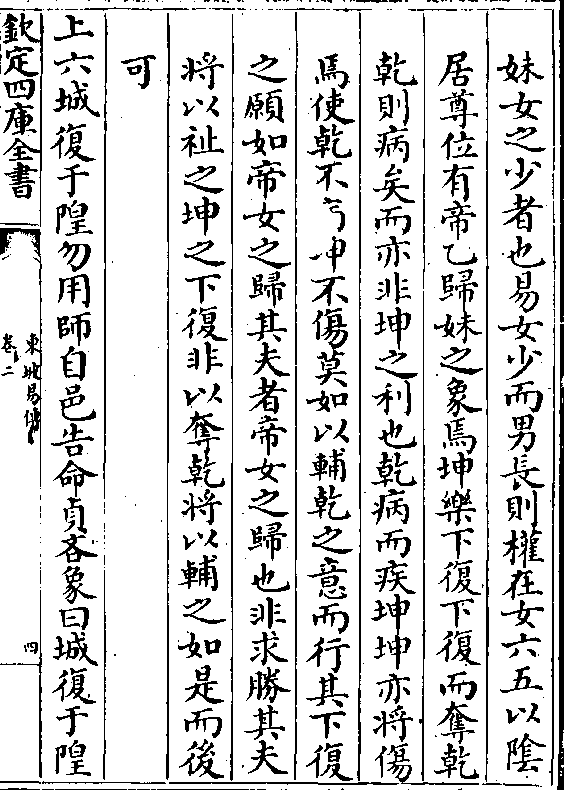 妹女之少者也易女少而男長則權在女六五以陰
居尊位有帝乙歸妹之象焉坤樂下復下復而奪乾
乾則病矣而亦非坤之利也乾病而疾坤坤亦將傷
焉使乾不病坤不傷莫如以輔乾之意而行其下復
之願如帝女之歸其夫者帝女之歸也非求勝其夫
將以祉之坤之下復非以奪乾將以輔之如是而後
可
上六城復于隍勿用師自邑告命貞吝象曰城復于隍
欽定四庫全書
東坡易傳
卷二
四